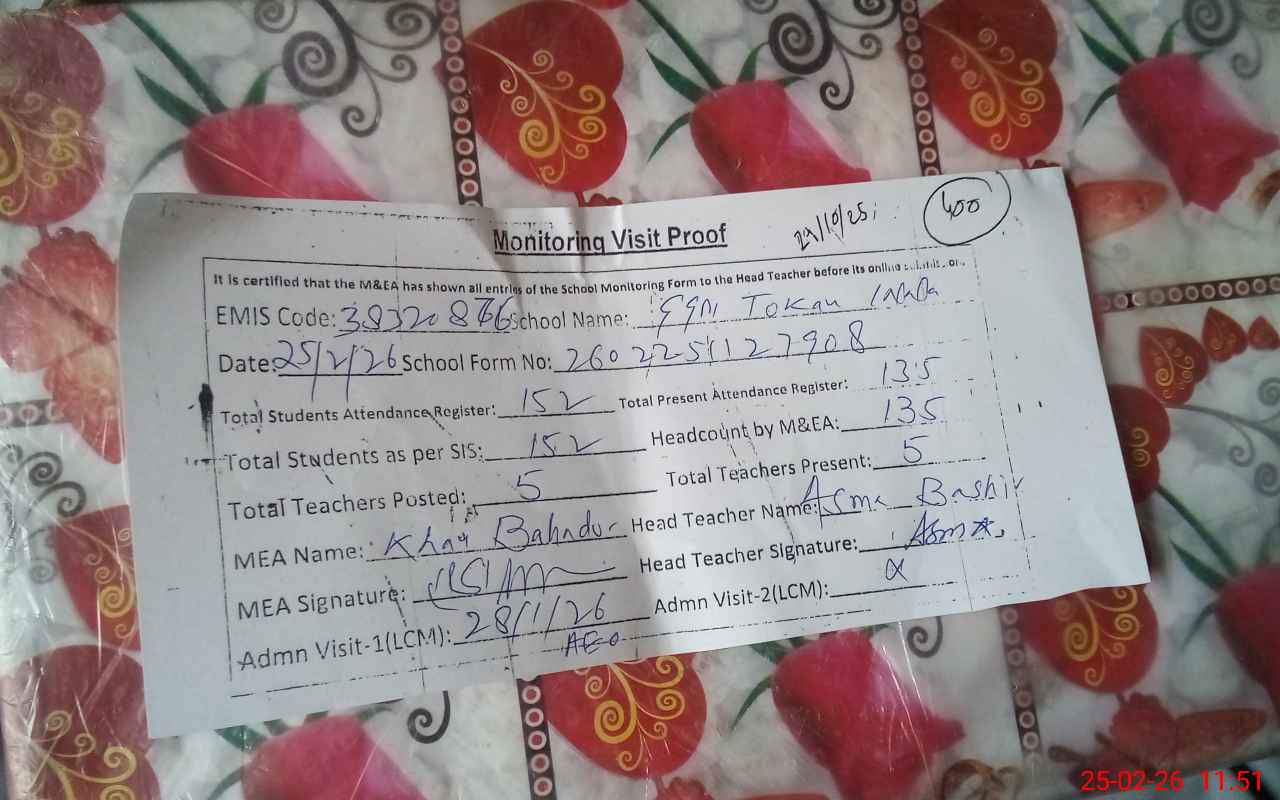 29/10/25
400
Monitoring Visit Proof
It is certified that the M&EA has shown all entries of the School Monitoring Form to the Head Teacher before its online
EMIS Code: 38320876 School Name: GGM Tokan
Date: 25/2/26 School Form No: 2602251127908
Total Students Attendance Register: 152 Total Present Attendance Register: 135
Total Students as per SIS: 152 Headcount by M&EA: 135
Total Teachers Posted: 5 Total Teachers Present: 5
MEA Name: Khan Bahadur Head Teacher Name: Asma Bashir
MEA Signature: Head Teacher Signature: Asma
Admn Visit-1(LCM): 28/1/26 Admn Visit-2(LCM):
AEO
25-02-26 11.51